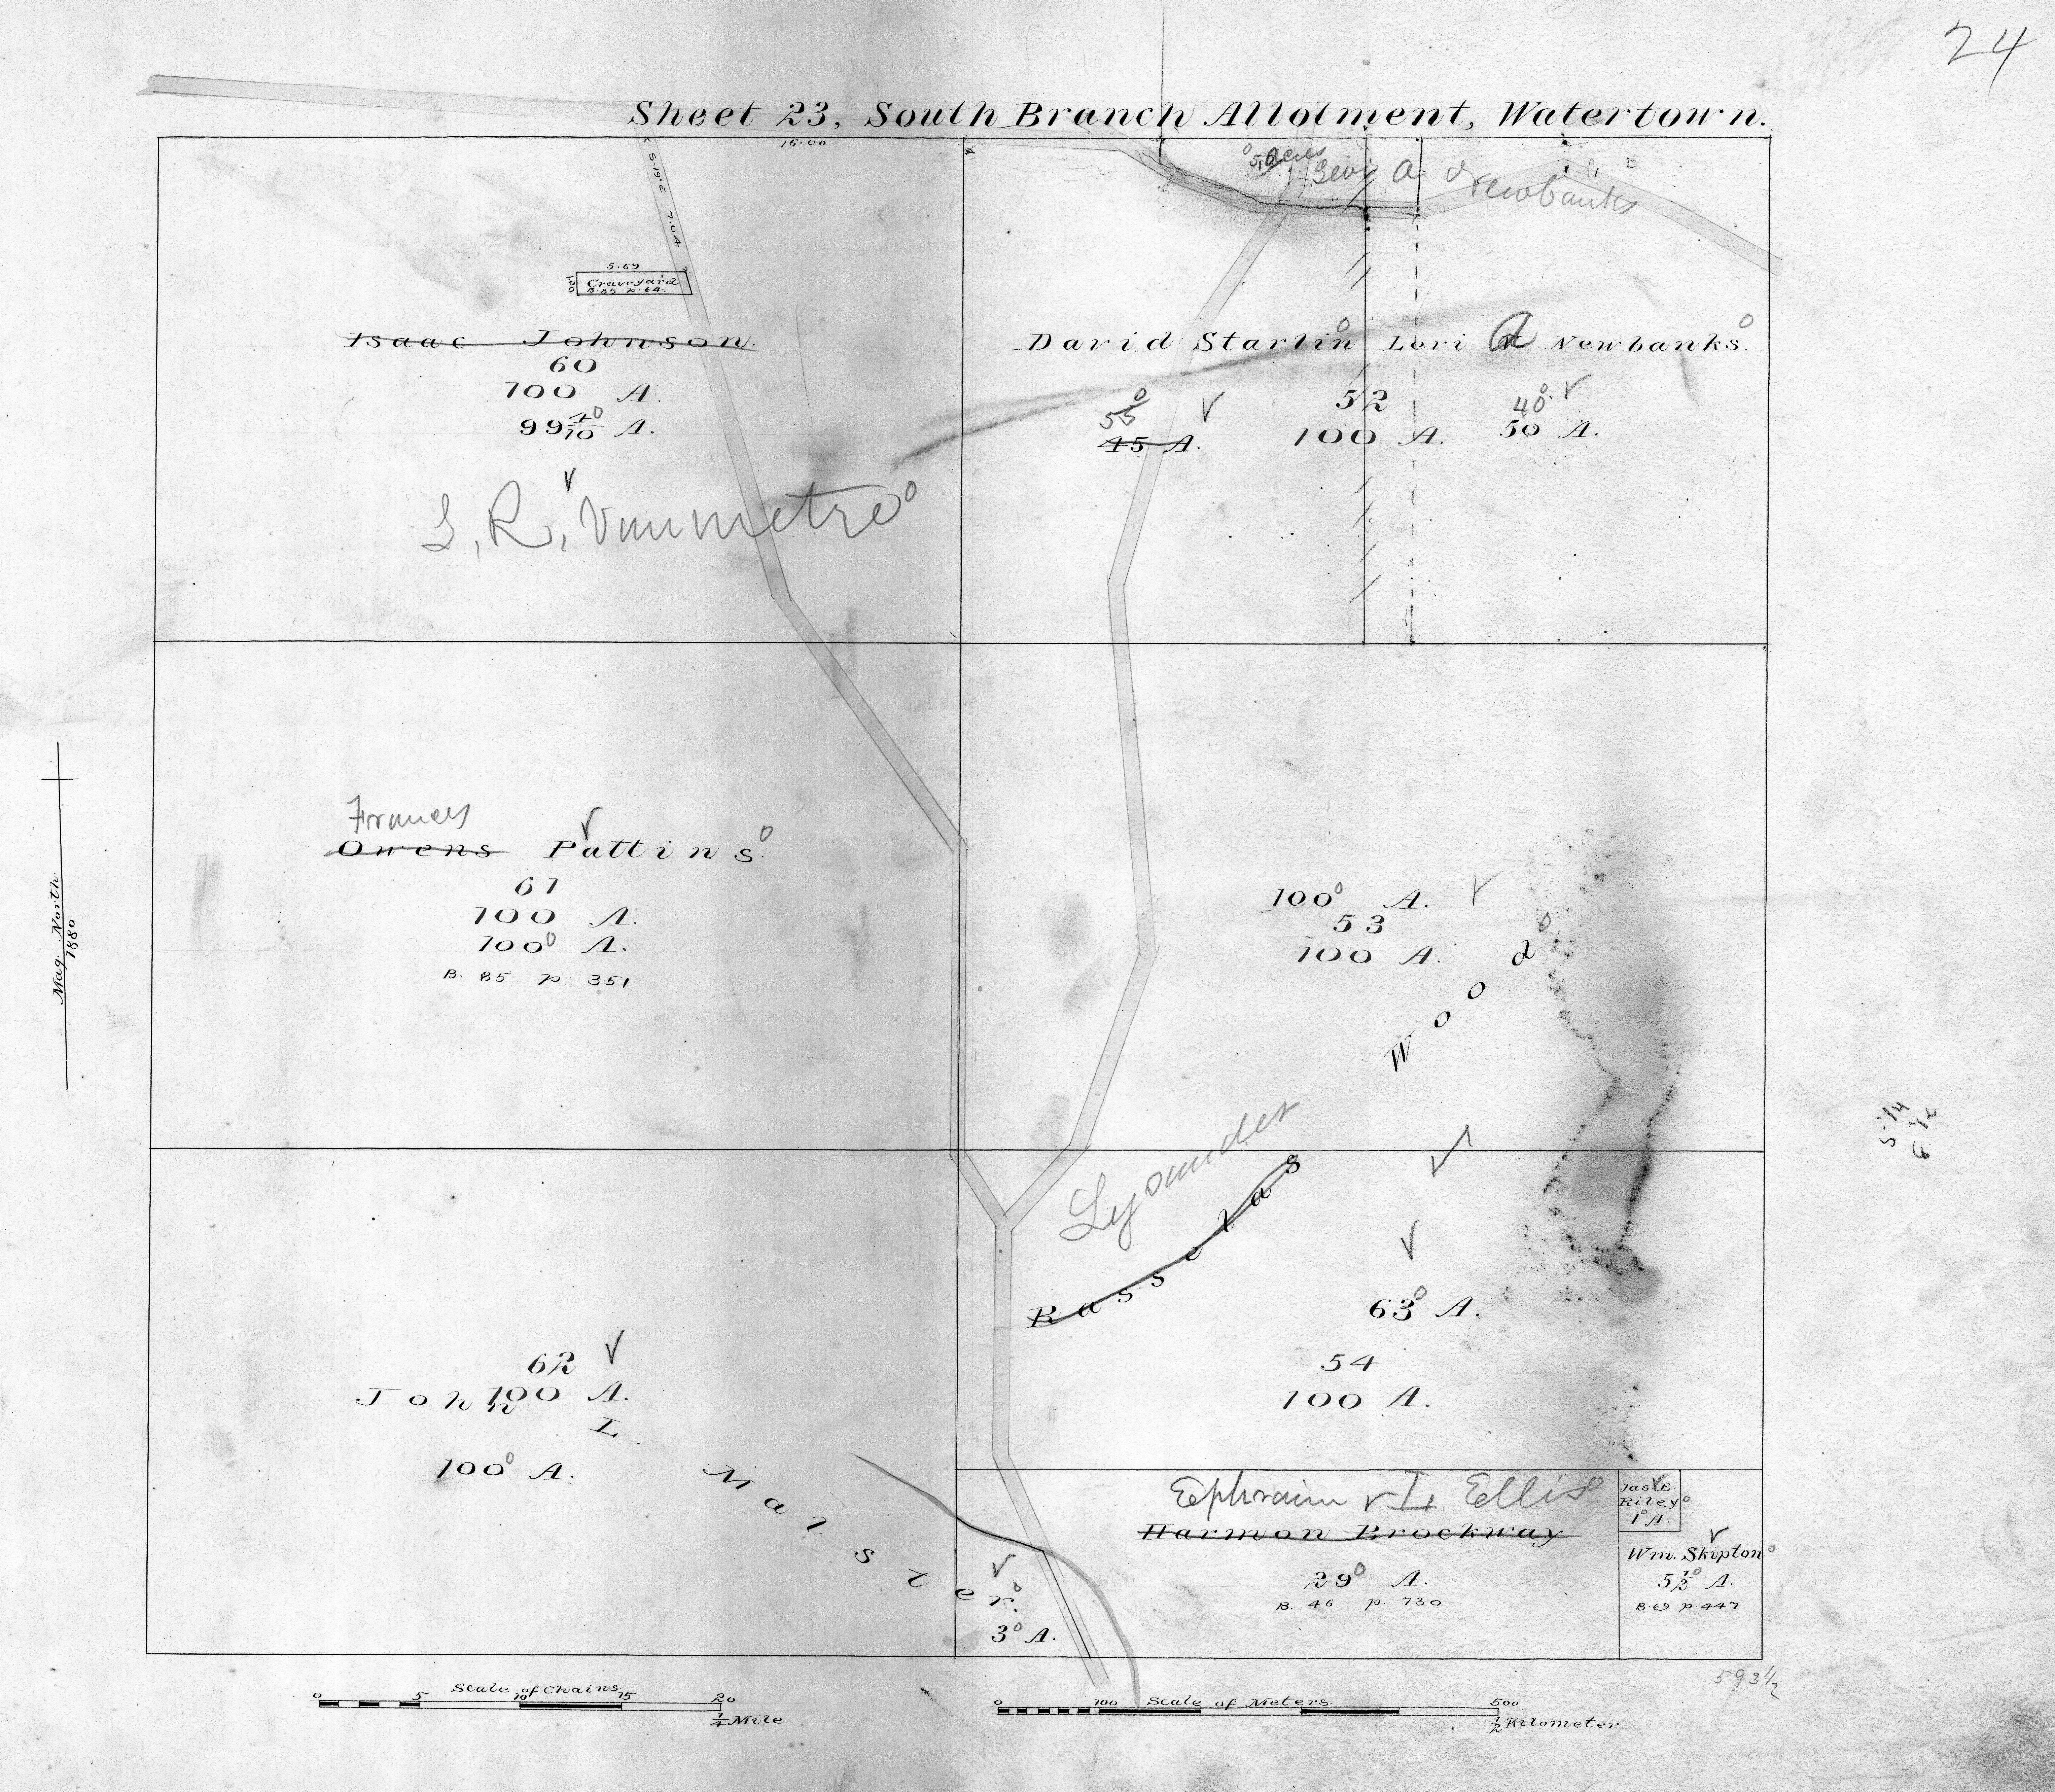 24
Sheet 23, South Branch Allotment, Watertown.
16.00
S. 19. E 7.04
5 acres
Levi A Newbanks
5.69
Graveyard
B. 85 p. 64.
Isaac Johnson.
60
100 A.
99 4/10 A.
L. R. Vanmetre
David Starlin
55
45 A.
52
100 A.
Levi A Newbanks.
40
50 A.
Frances
Owens Pattins.
61
100 A.
100 A.
B. 85 p. 351
100 A.
53
100 A.
Lysander
Rasselas Wood
63 A.
54
100 A.
62
100 A.
John L. Malster.
100 A.
3 A.
Ephraim L Ellis
Harmon Brockway
29 A.
B. 46 p. 730
Jas. E.
Riley
1 A.
Wm. Skipton
5 1/2 A.
B. 69 p. 447
593 1/2
Mag. North
1880
Scale of Chains.
0 5 10 15 20
1/4 Mile
Scale of Meters.
0 100 500
1/2 Kilometer